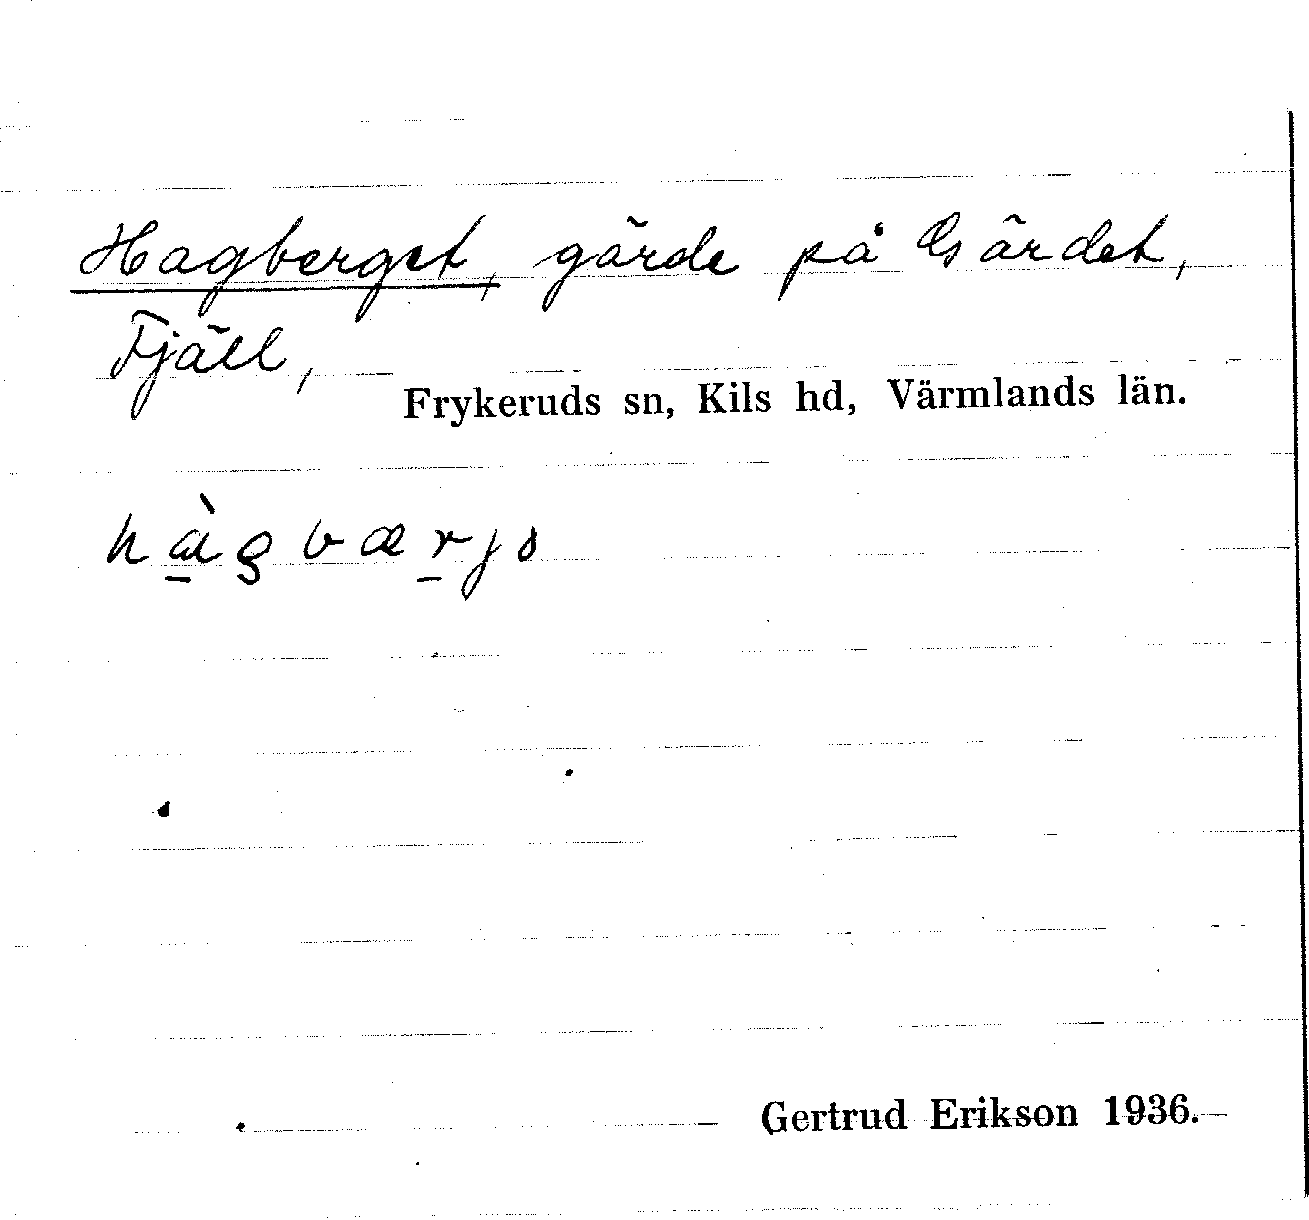 Hagberget, gärde på Gärdet,
Fjäll,
Frykeruds sn, Kils hd, Värmlands län.
hàgbærjə
Gertrud Erikson 1936.